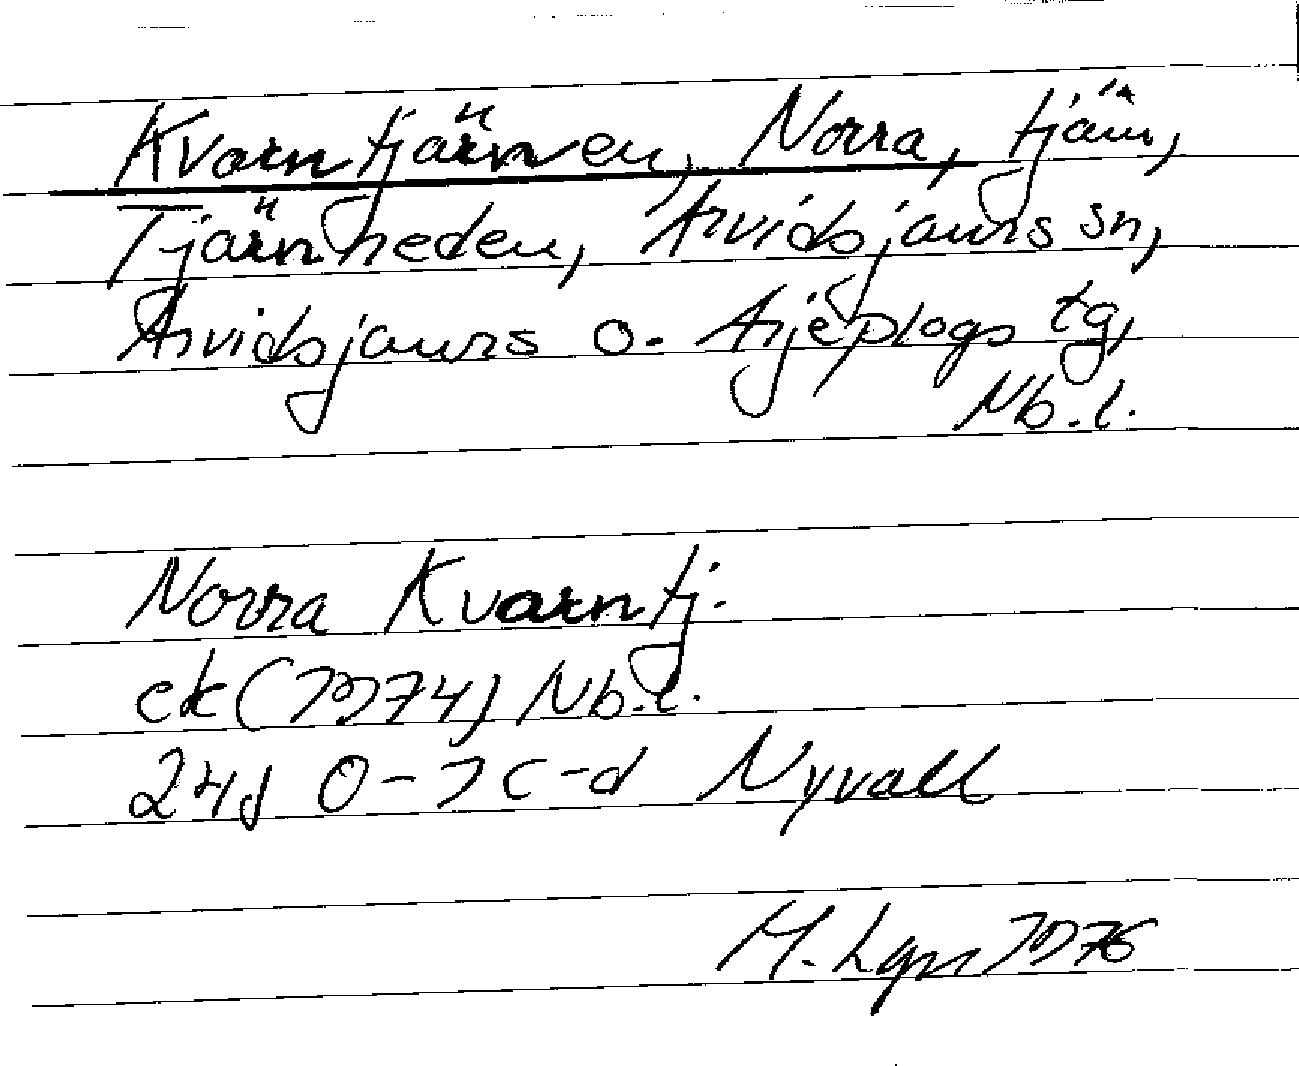 Kvarntjärnen, Norra, tjärn,
Tjärnheden, Arvidsjaurs sn,
Arvidsjaurs o. Arjeplogs tg,
Nb.l.
Norra Kvarntj.
ek (1974) Nb.l.
24J 0-1 c-d Nyvall
M. Lgn 1976